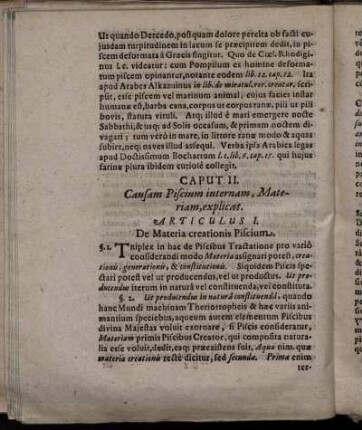 Ut quando Dercedo, postquam dolore percita ob facti cu-
jusdam turpitudinem in lacum se præcipitem dedit, in pi-
scem deformata à Græcis fingitur. Quo de Cœl. Rhodigi-
nus l.c. videatur: cum Pompilum ex homine deforma-
tum piscem opinantur, notante eodem lib. 12. cap. 12. Ita
apud Arabes Alkazuinus in lib. de miracul. rer. creatar. scri-
psit, esse piscem vel marinum animal, cujus facies instar
humanæ est, barba cana, corpus ut corpus ranæ, pili ut pili
bovis, statura vituli. Atq; illud è mari emergere nocte
Sabbathi, & usq; ad Solis occasum, & primam noctem di-
vagari; tum verò in mare, in littore ranæ modo & aquas
subire, neq; naves illud assequi. Verba ipsa Arabica legas
apud Doctissimum Bochartum l. 1. lib. 6. cap. 15. qui hujus
farinæ plura ibidem curiosè collegit.
CAPUT II.
Causam Piscium internam, Mate-
riam, explicat.
ARTICULUS I.
De Materia creationis Piscium.
§. 1. TRiplex in hac de Piscibus Tractatione pro variò
considerandi modo Materia assignari potest, crea-
tionis, generationis, & constitutionis. Siquidem Piscis spe-
ctari potest vel ut producendus, vel ut productus. Ut pro-
ducendus iterum in naturâ vel constituenda, vel constituta.
§. 2. Ut producendus in naturâ constituendâ, quando
hanc Mundi machinam Theriotropheis & hæc variis ani-
mantium speciebus, aqueum autem elementum Piscibus
divina Majestas voluit exornare, si Piscis consideratur,
Materiam primis Piscibus Creator, qui composita natura-
lia esse voluit, dedit, eaq; præexistens fuit, Aqua nim. quæ
materia creationis rectè dicitur, sed secunda. Prima enim